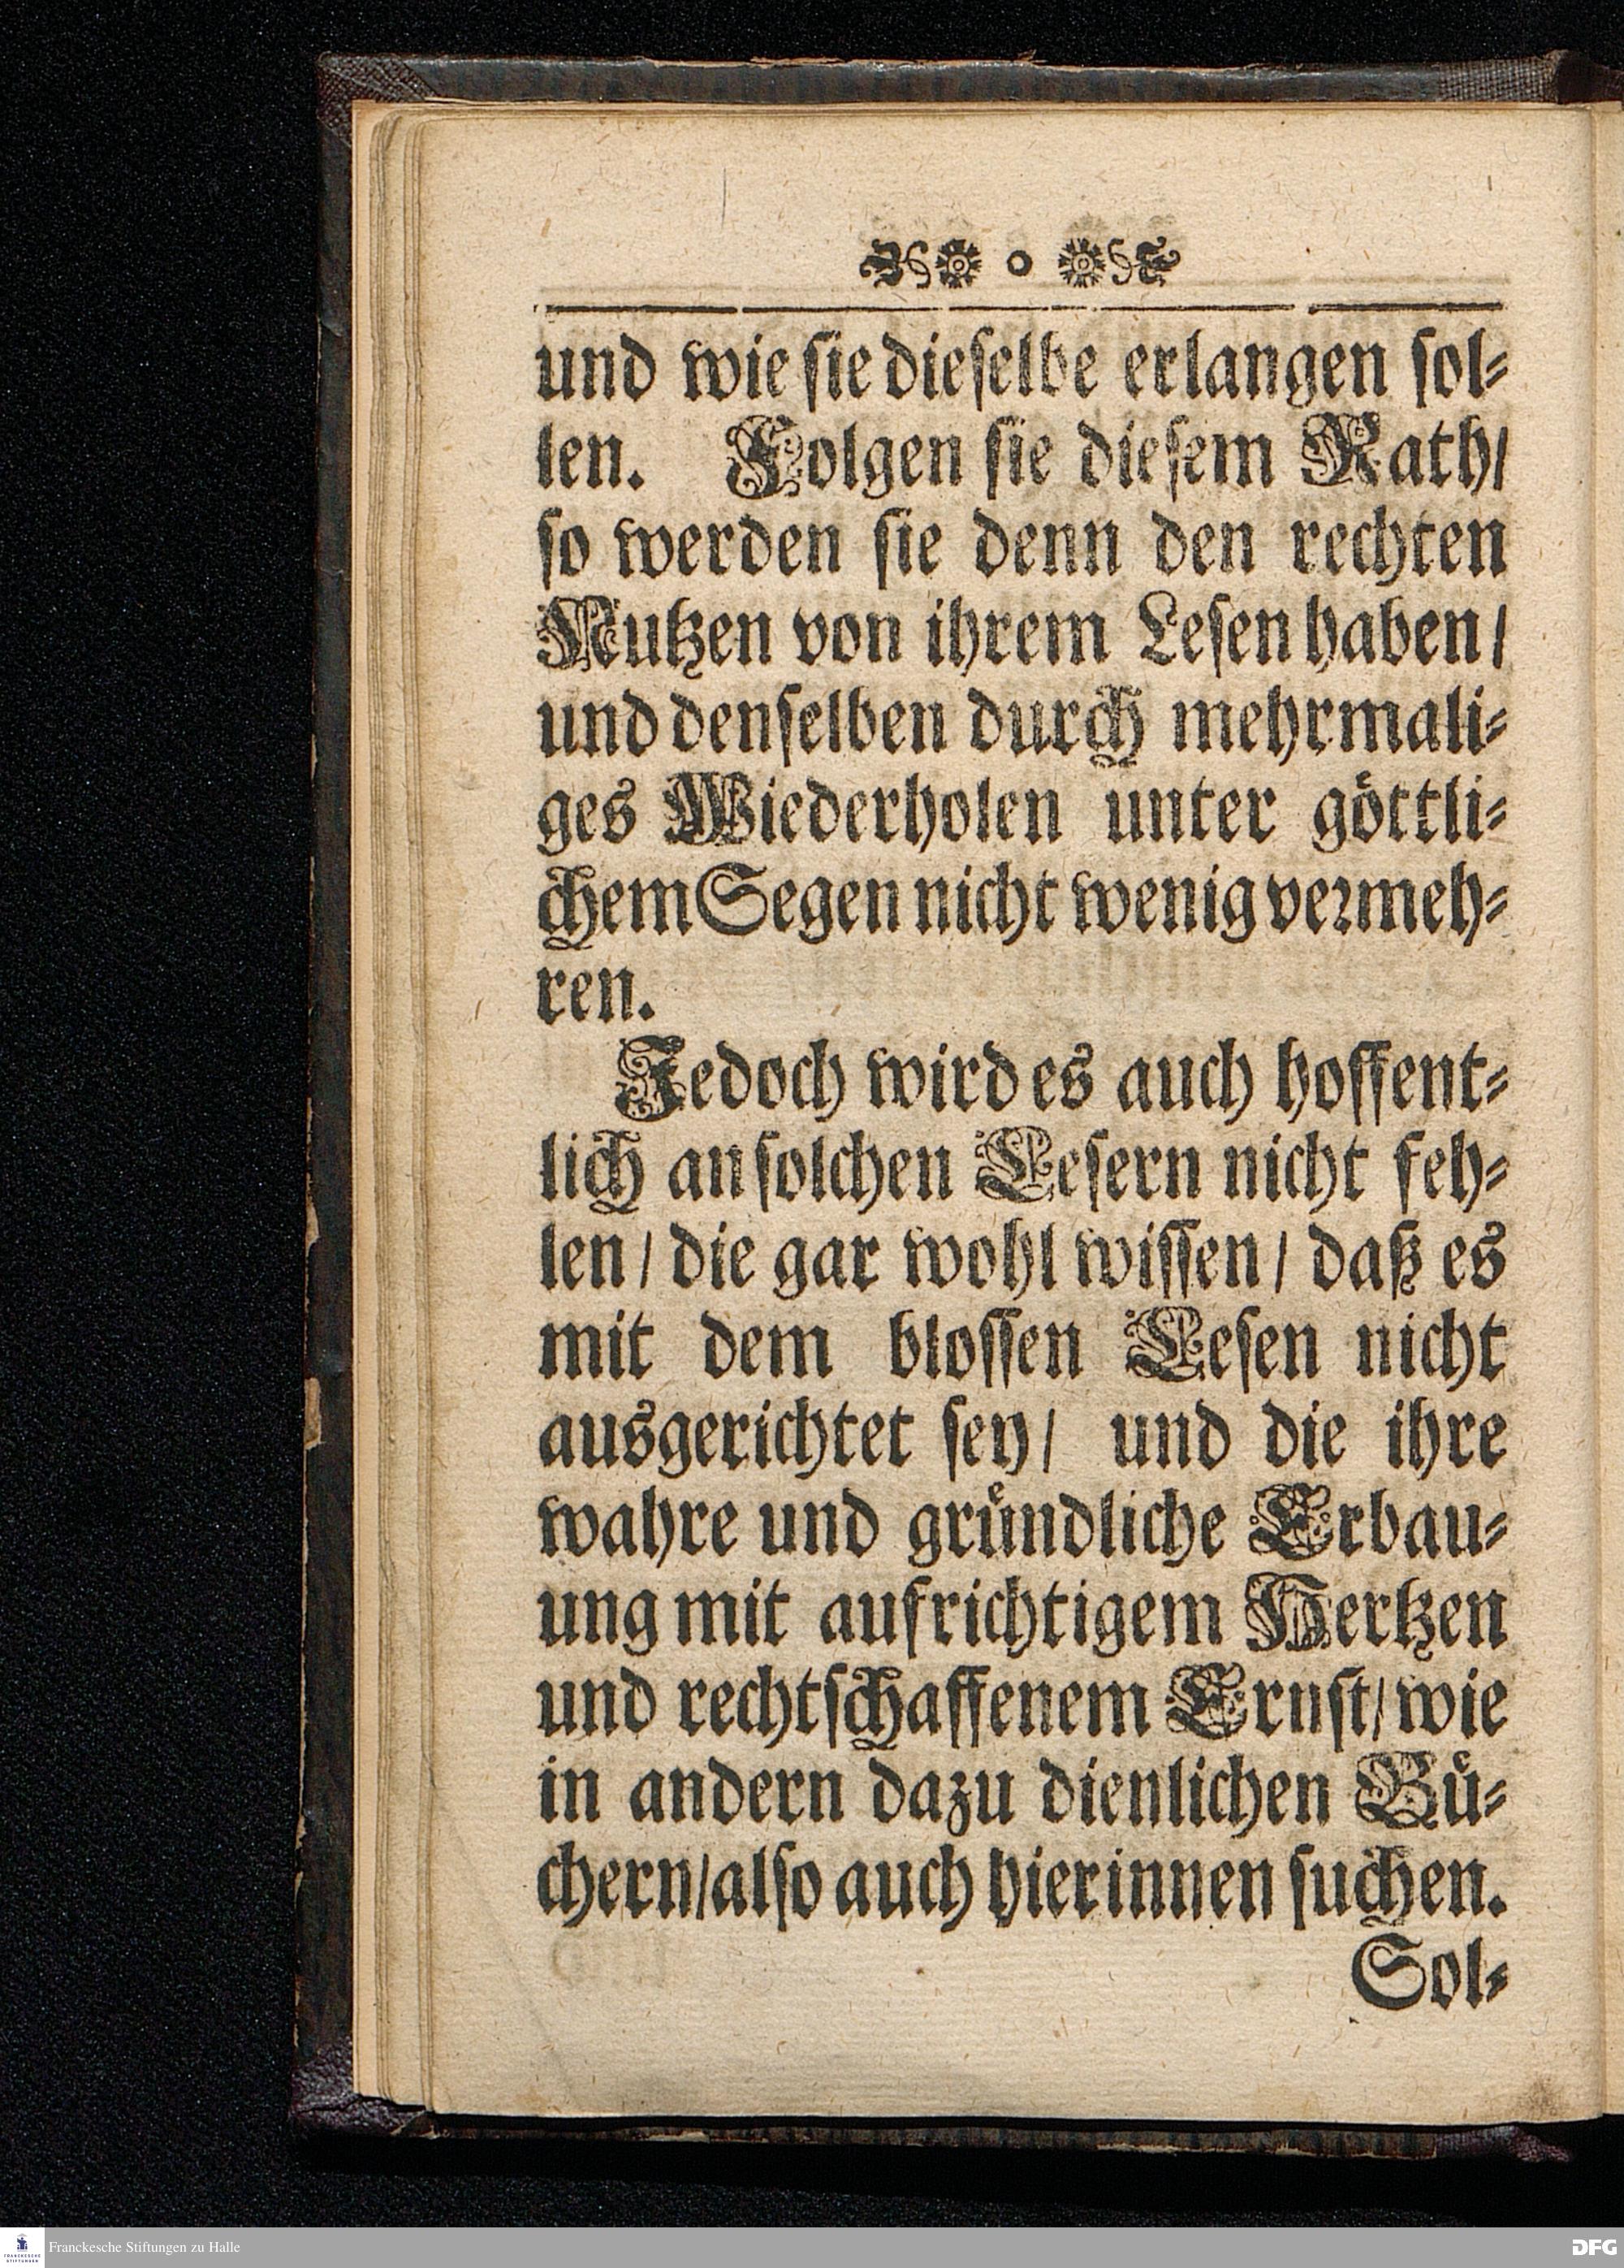 und wie ſie dieſelbe erlangen ſol⸗
len. Folgen ſie dieſem Rath/
ſo werden ſie denn den rechten
Nutzen von ihrem Leſen haben/
und denſelben durch mehrmali⸗
ges Wiederholen unter goͤttli⸗
chem Segen nicht wenig veꝛmeh⸗
ren.
Jedoch wird es auch hoffent⸗
lich an ſolchen Leſern nicht feh⸗
len/ die gar wohl wiſſen/ daß es
mit dem bloſſen Leſen nicht
ausgerichtet ſey/ und die ihre
wahre und gruͤndliche Erbau⸗
ung mit aufrichtigem Hertzen
und rechtſchaffenem Ernſt/ wie
in andern dazu dienlichen Buͤ⸗
chern/ alſo auch hierinnen ſuchen.
Sol⸗
Franckesche Stiftungen zu Halle
FRANCKESCHE
STIFTUNGEN
DFG